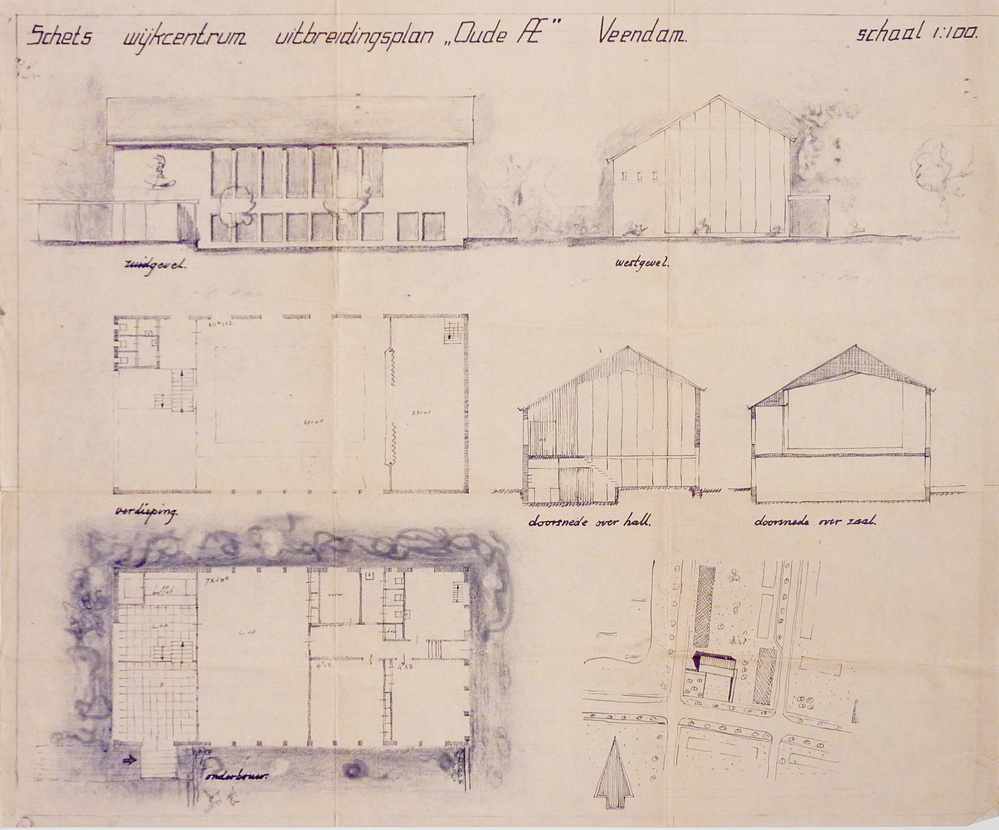 Schets wijkcentrum uitbreidingsplan „Oude Æ” Veendam. schaal 1:100.
zuidgevel.
westgevel.
verdieping.
doorsnede over hall.
doorsnede over zaal.
buffet
onderbouw.